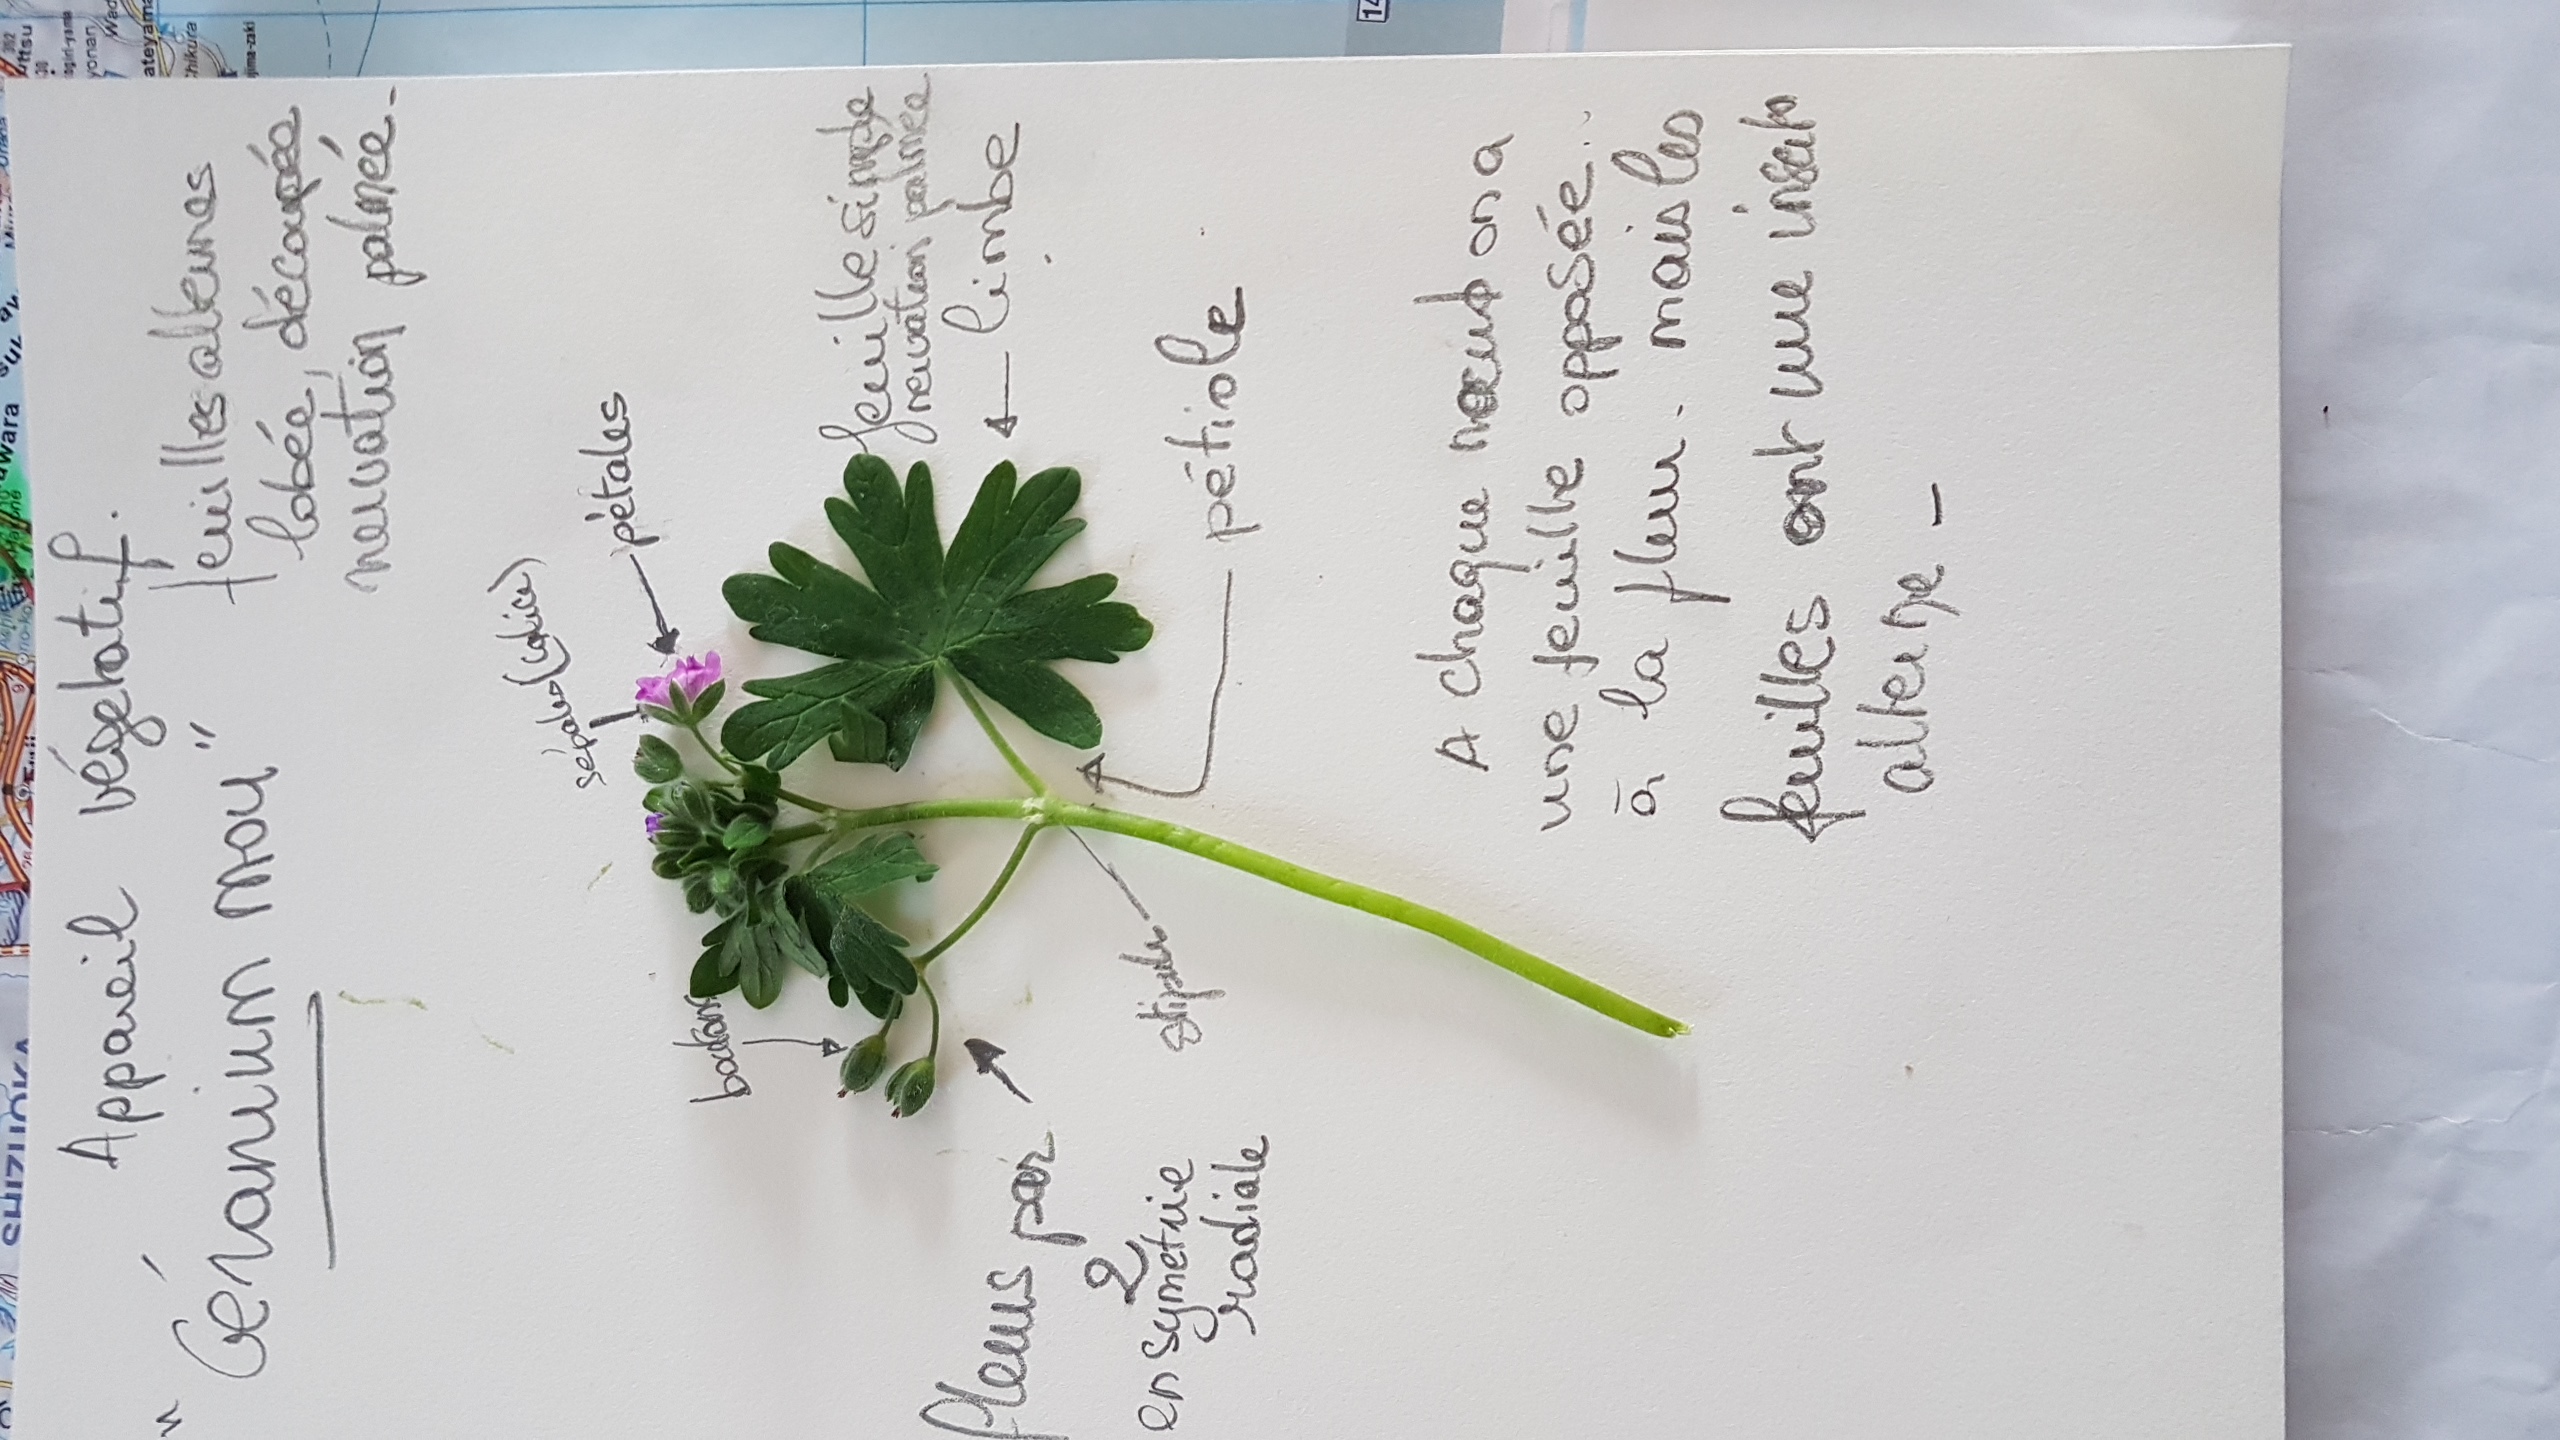 Appareil végétatif.
" Géranium mou "
feuilles alternes
lobée, découpée
nervation palmée.
sépales (calice)
pétales
feuille simple
nervation palmée
limbe
pétiole
bouton
fleurs par
2
en symétrie
radiale
stipules
A chaque nœud on a
une feuille opposée..
à la fleur. mais les
feuilles ont une
alterne -
SHIZUOKA
Chikura
14